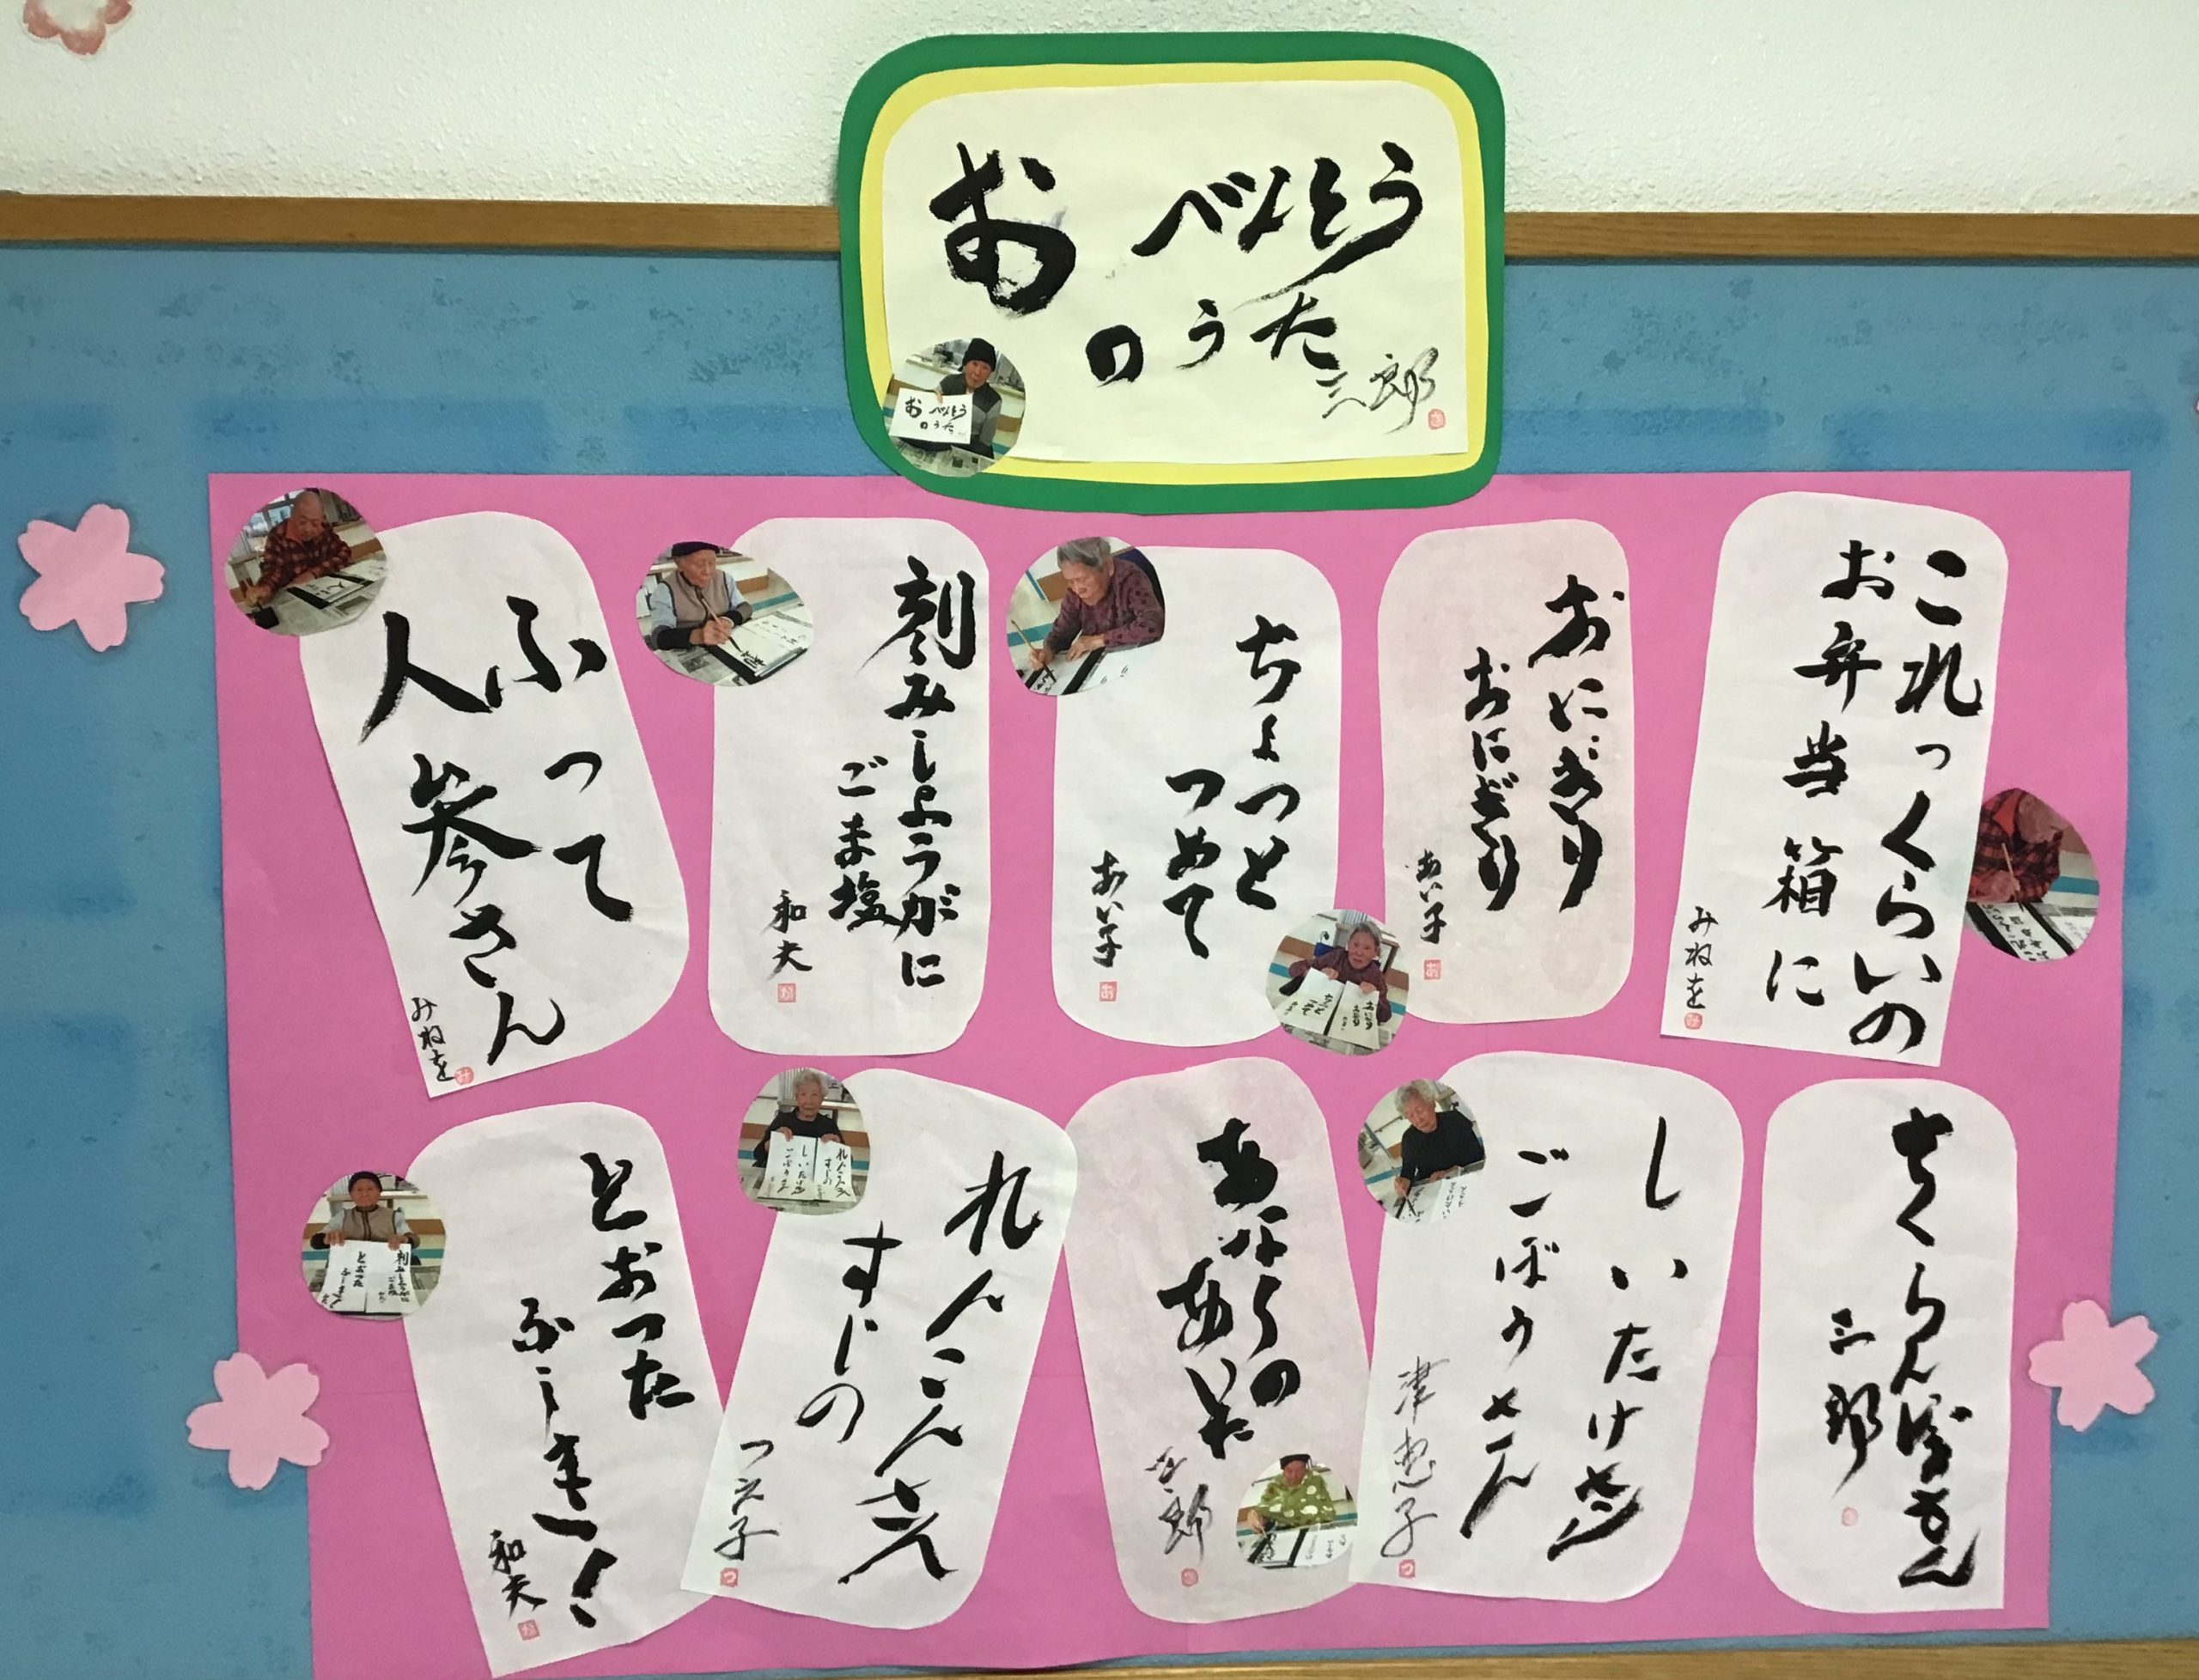 おべんとう
のうた
三郎
これっくらいの
お弁当箱に
みねを
おにぎり
おにぎり
あい子
ちょっと
つめて
あい子
刻みしょうがに
ごま塩
和夫
ふって
人参さん
みねを
さくらんぼさん
三郎
しいたけさん
ごぼうさん
津恵子
あなの
あいた
れんこんさん
すじの
つえ子
とおった
ふーきー！
和夫